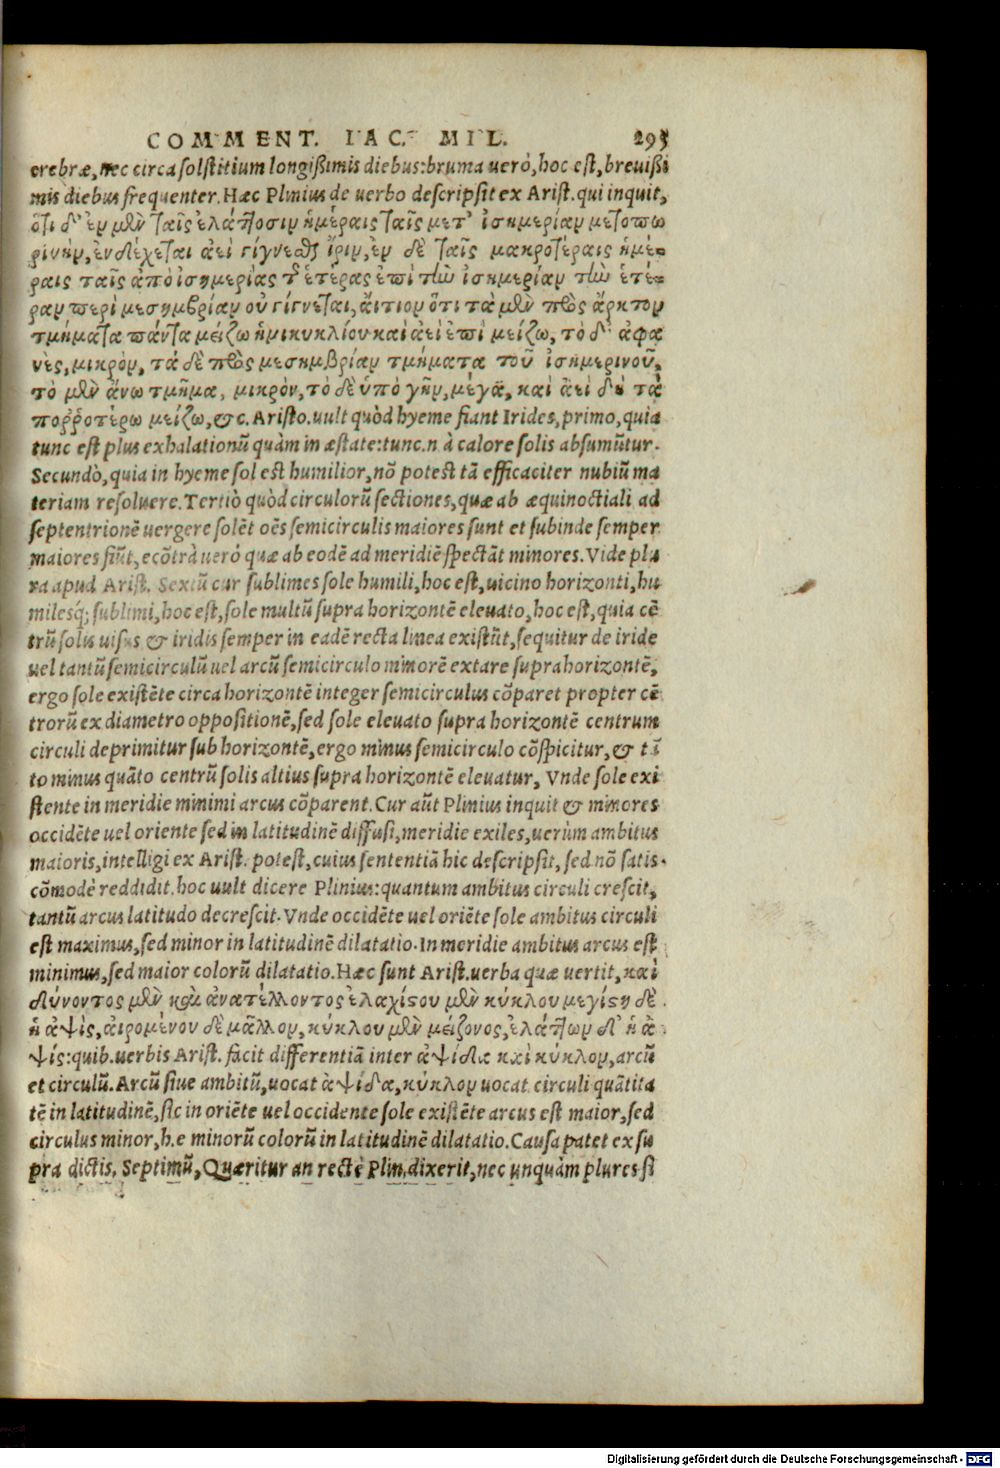 COMMENT. IAC. MIL. 295
crebræ, nec circa solstitium longißimis diebus: bruma uerò, hoc est, breuißi
mis diebus frequenter. Hæc Plinius de uerbo descripsit ex Arist. qui inquit,
ὅτι δ' ἐν μὲν ταῖς ἐλάττοσιν ἡμέραις ταῖς μετ' ἰσημερίαν μετοπω
ρινὴν, ἐνδέχεται ἀεὶ γίγνεσθαι ἶριν, ἐν δὲ ταῖς μακροτέραις ἡμέ-
ραις ταῖς ἀπὸ ἰσημερίας τ ἑτέρας ἐπὶ τὴν ἰσημερίαν τὴν ἑτέ-
ραν περὶ μεσημβρίαν οὐ γίγνεται, αἴτιον ὅτι τὰ μὲν πρὸς ἄρκτον
τμήματα πάντα μείζω ἡμικυκλίου καὶ ἀεὶ ἐπὶ μείζω, τὸ δ' ἀφα
νὲς, μικρὸν, τὰ δὲ πρὸς μεσημβρίαν τμήματα τοῦ ἰσημερινοῦ,
τὸ μὲν ἄνω τμῆμα, μικρὸν, τὸ δὲ ὑπὸ γῆν, μέγα, καὶ ἀεὶ δὴ τὰ
πορῤῥοτέρω μείζω, &c. Aristo. uult quòd hyeme fiant Irides, primo, quia
tunc est plus exhalationū quàm in æstate: tunc.n à calore solis absumūtur.
Secundò, quia in hyeme sol est humilior, nō potest tā efficaciter nubiū ma
teriam resoluere. Tertiò quòd circulorū sectiones, quæ ab æquinoctiali ad
septentrionē uergere solēt oēs semicirculis maiores sunt et subinde semper
maiores fiūt, ecōtrà uerò quæ ab eodē ad meridiē spectāt minores. Vide plu
ra apud Arist. Sextū cur sublimes sole humili, hoc est, uicino horizonti, hu
milesq́; sublimi, hoc est, sole multū supra horizontē eleuato, hoc est, quia cē
trū solis uisus & iridis semper in eadē recta linea existūt, sequitur de iride
uel tantū semicirculū uel arcū semicirculo minorē extare supra horizontē,
ergo sole existēte circa horizontē integer semicirculus cōparet propter cē
trorū ex diametro oppositionē, sed sole eleuato supra horizontē centrum
circuli deprimitur sub horizontē, ergo minus semicirculo cōspicitur, & tā
to minus quāto centrū solis altius supra horizontē eleuatur, Vnde sole exi
stente in meridie minimi arcus cōparent. Cur aūt Plinius inquit & minores
occidēte uel oriente sed in latitudinē diffusi, meridie exiles, uerùm ambitus
maioris, intelligi ex Arist. potest, cuius sententiā hic descripsit, sed nō satis
cōmodè reddidit. hoc uult dicere Plinius: quantum ambitus circuli crescit,
tantū arcus latitudo decrescit. Vnde occidēte uel oriēte sole ambitus circuli
est maximus, sed minor in latitudinē dilatatio. In meridie ambitus arcus est
minimus, sed maior colorū dilatatio. Hæc sunt Arist. uerba quæ uertit, καὶ
δύνοντος μὲν καὶ ἀνατέλλοντος ἐλαχίστου μὲν κύκλου μεγίστη δὲ
ἡ ἁψὶς, αἰρομένου δὲ μᾶλλον, κύκλου μὲν μείζονος, ἐλάττων δ' ἡ ἁ
ψίς: quib. uerbis Arist. facit differentiā inter ἁψίδα καὶ κύκλον, arcū
et circulū. Arcū siue ambitū, uocat ἁψίδα, κύκλον uocat circuli quātita
tē in latitudinē, sic in oriēte uel occidente sole existēte arcus est maior, sed
circulus minor, h.e minorū colorū in latitudinē dilatatio. Causa patet ex su
pra dictis. Septimū, Quæritur an rectè Plin. dixerit, nec unquàm plures si
Digitalisierung gefördert durch die Deutsche Forschungsgemeinschaft - DFG